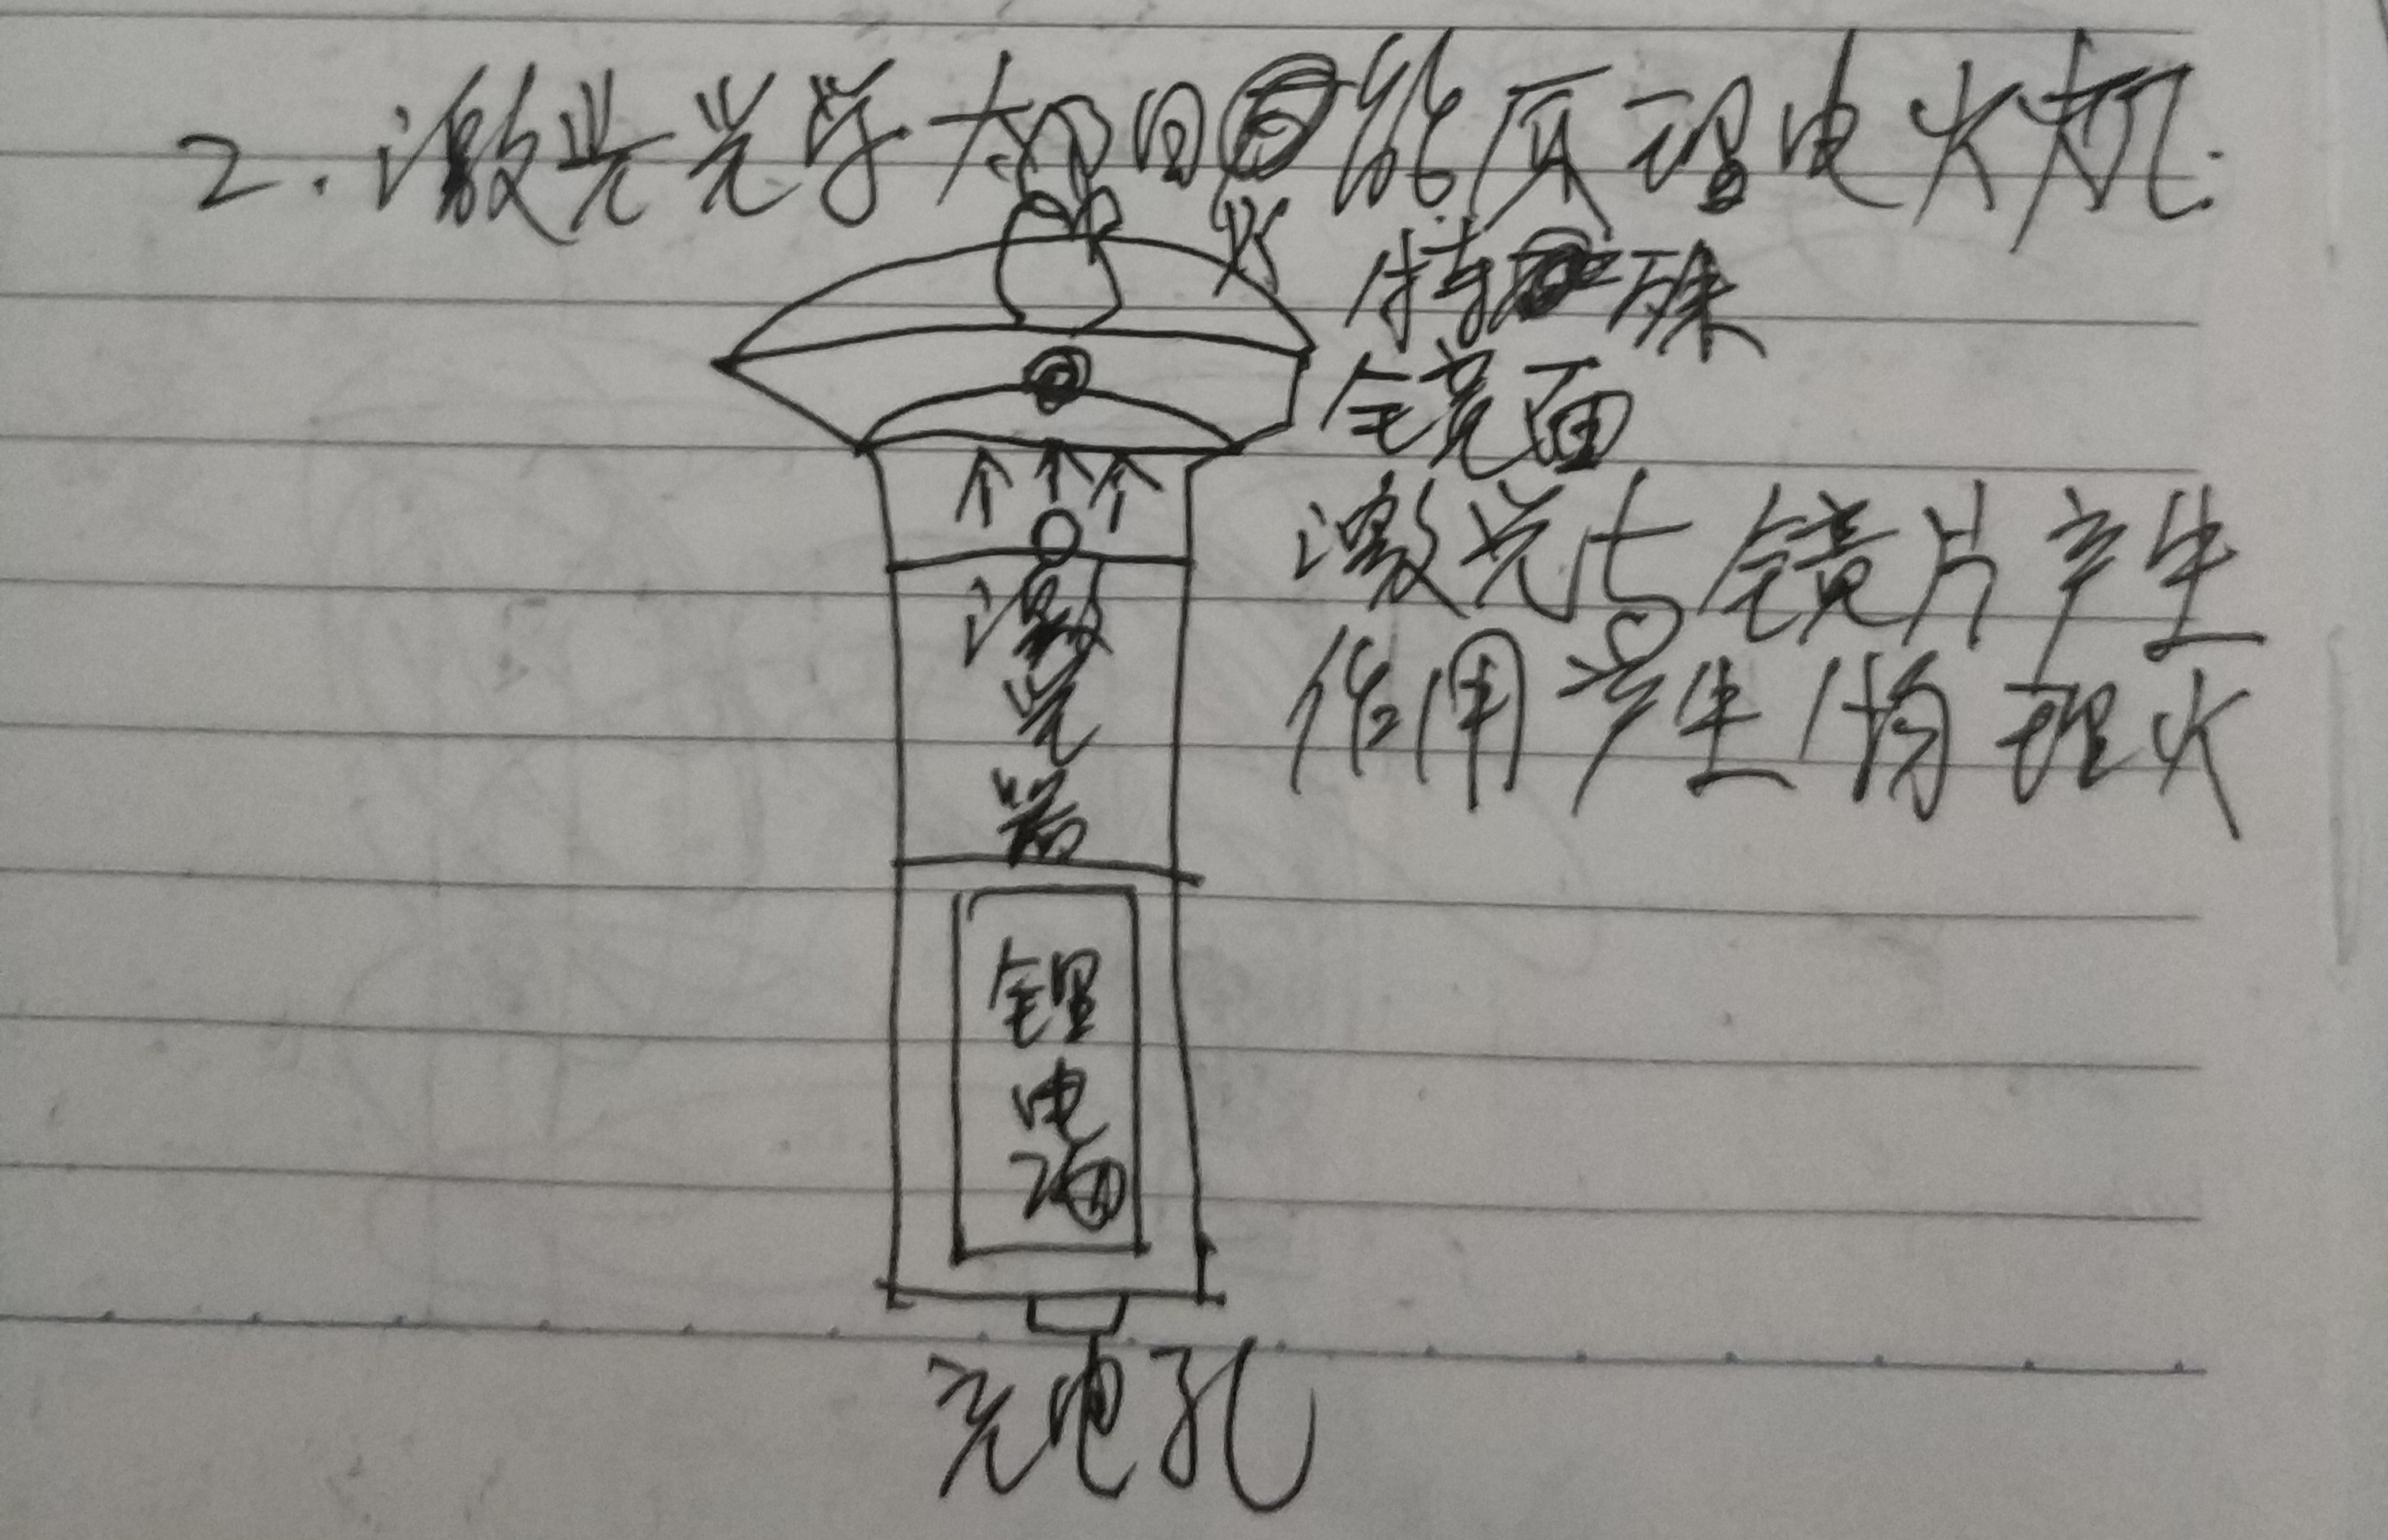 2.激光光学太阳能原理电火机.
特殊
镜面
激光与镜片产生
作用产生物理火
激
光
器
锂
电
池
充电孔